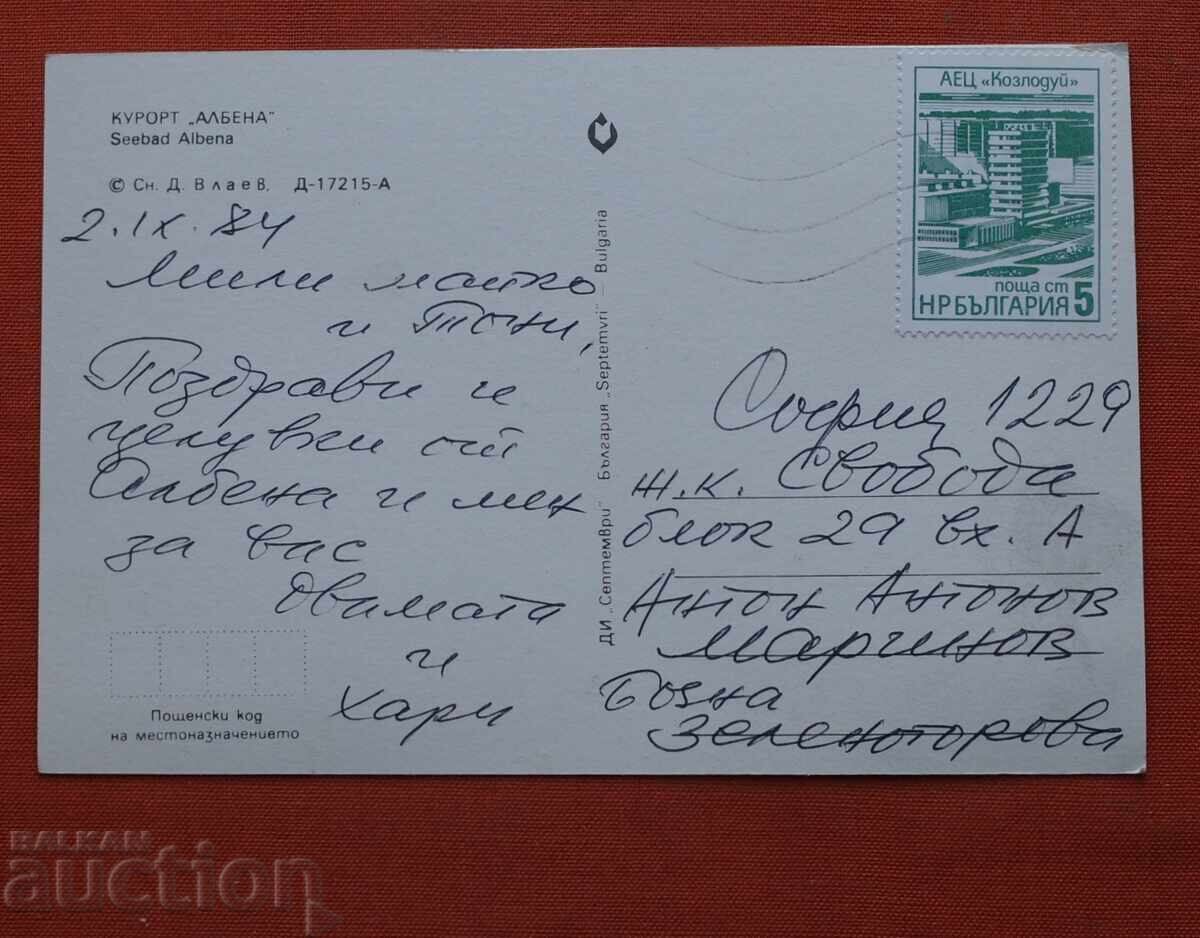 КУРОРТ „АЛБЕНА"
Seebad Albena
© Сн. Д. Влаев, Д-17215-А
2.IX.84
Мили майко
и Тони,
Поздрави и
целувки от
Албена и мен
за вас
двамата
и
Хари
Пощенски код
на местоназначението
ДИ „Септември" България „Septemvri" — Bulgaria
АЕЦ «Козлодуй»
поща ст
НРБЪЛГАРИЯ 5
София 1229
ж.к. Свобода
блок 29 вх. А
Антон Антонов
Маринов
Зеленогорова
BALKAN
auction